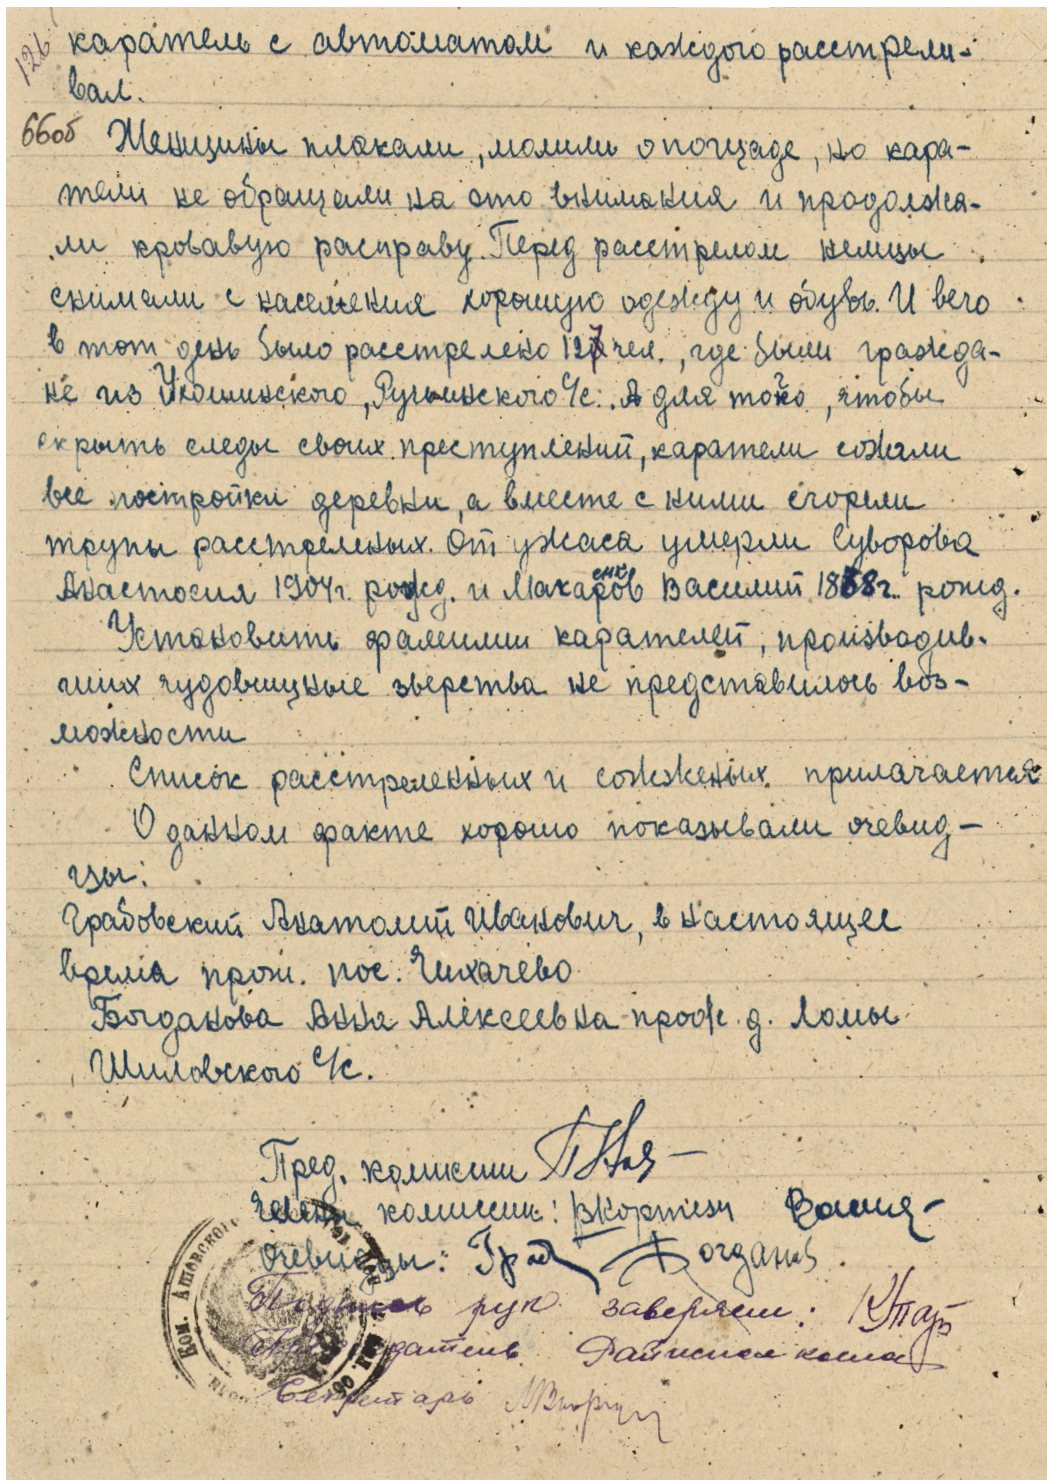 126
каратель с автоматом и каждого расстрели-
вал.
66об
Женщины плакали, молили о пощаде, но кара-
тели не обращали на это внимания и продолжа-
ли кровавую расправу. Перед расстрелом немцы
снимали с населения хорошую одежду и обувь. И вего
в тот день было расстрелено 127 чел., где были гражда-
не из Ухошинского, Ручьинского с/с. А для того, чтобы
скрыть следы своих преступлений, каратели сожгли
все постройки деревни, а вместе с ними сгорели
трупы расстреленых. От ужаса умерли Суворова
Анастосия 1904г. рожд. и Макаренков Василий 1868г. рожд.
Установить фамилии карателей, производив-
ших чудовищные зверства не представилось воз-
можности
Список расстреленных и сожженых прилагается
О данном факте хорошо показывали очевид-
цы:
Грабовский Анатолий Иванович, в настоящее
время прож. пос. Чихачево
Богданова Анна Алексеевна прож. д. Ломы
Шиловского с/с.
Пред. комиссии
Члены комиссии:
очевидцы: Богданов
Подпись рук заверяем:
Председатель Райисполкома
Секретарь
Ком. Ашевского